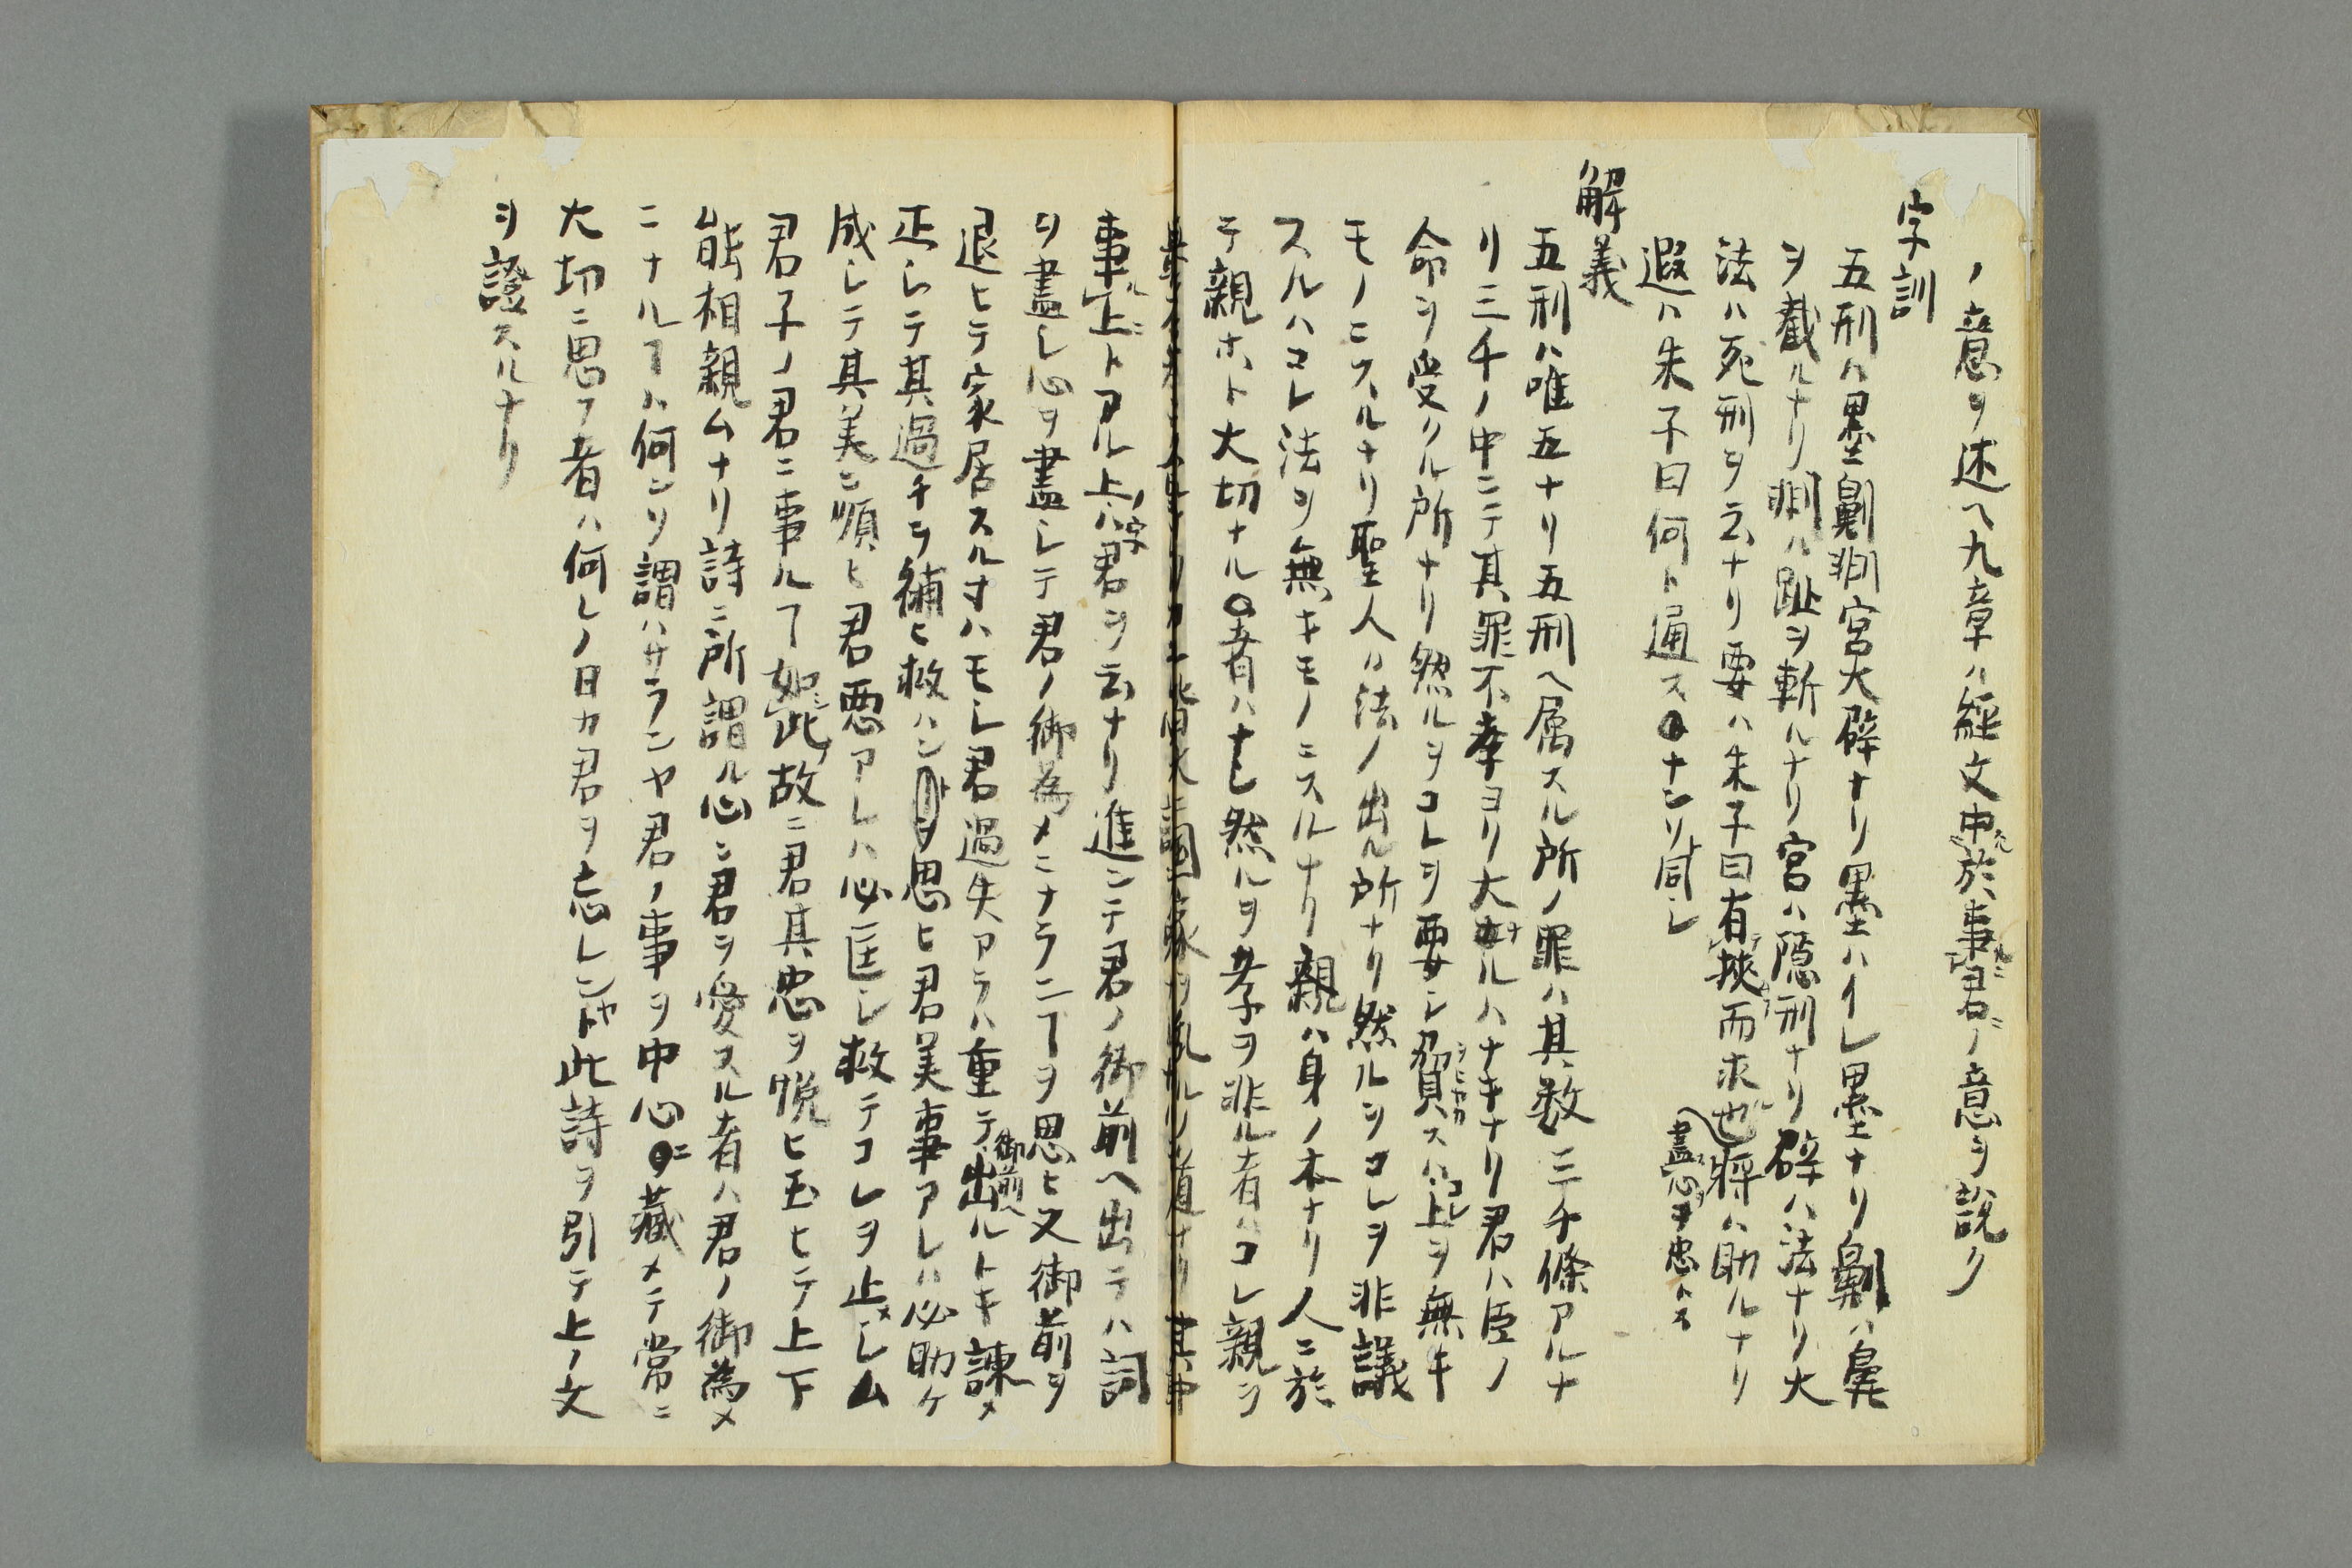 ノ意ヲ述ヘ九章ハ經文中於事君ノ意ヲ説ク
字訓
五刑ハ墨劓剕宮大辟ナリ墨ハイレ墨ナリ劓ハ鼻
ヲ截ルナリ剕ハ趾ヲ斬ルナリ宮ハ隠刑ナリ辟ハ法ナリ大
法ハ死刑ヲ云ナリ要ハ朱子曰有挾而求也將ハ助ルナリ
盡心ヲ忠トス
遐ハ朱子曰何ト通ス ナンソト同シ
解義
五刑ハ唯五ナリ五刑ヘ属スル所ノ罪ハ其数三千條アルナ
リ三千ノ中ニテ其罪不孝ヨリ大ナルハナキナリ君ハ臣ノ
命ヲ受クル所ナリ然ルヲコレヲ要シ脅スハコレ上ヲ無キ
モノニスルナリ聖人ハ法ノ出ル所ナリ然ルヲコレヲ非議
スルハコレ法ヲ無キモノニスルナリ親ハ身ノ本ナリ人ニ於
テ親ホト大切ナル者ハナシ然ルヲ孝ヲ非ル者ハコレ親ヲ
道ナリ其中
事ルニ上トアル上ノ字ハ君ヲ云ナリ進ンテ君ノ御前ヘ出テハ詞
ヲ盡シ心ヲ盡シテ君ノ御為メニナラン𪜈ヲ思ヒ又御前ヲ
退ヒテ家居スル寸ハモシ君過失アラハ重テ御前ヘ出ルトキ諫メ
正シテ其過チヲ補ヒ救ハンヿヲ思ヒ君美事アレハ必助ケ
成シテ其美ニ順ヒ君悪アレハ必匡シ救テコレヲ止メシム
君子ノ君ニ事ルヿ如此故ニ君其忠ヲ悦ヒ玉ヒテ上下
能相親ムナリ詩ニ所謂ル心ニ君ヲ愛スル者ハ君ノ御為メ
ニナルヿハ何ンソ謂ハサランヤ君ノ事ヲ中心ニ藏メテ常ニ
大切ニ思フ者ハ何レノ日カ君ヲ忘レンヤト此詩ヲ引テ上ノ文
ヲ證スルナリ